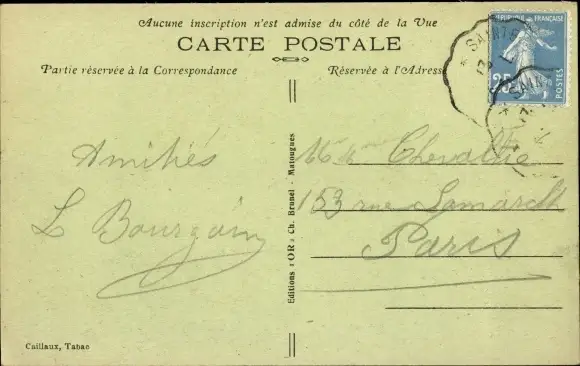 Aucune inscription n'est admise du côté de la Vue
CARTE POSTALE
Partie réservée à la Correspondance
Réservée à l'Adresse
REPUBLIQUE FRANÇAISE
25
POSTES
SAINTE
13
SAINT
13
Amitiés
L Bourgoin
Editions "OR" Ch. Brunel - Matougues
Chevalier
153 rue Lamarck
Paris
Caillaux, Tabac